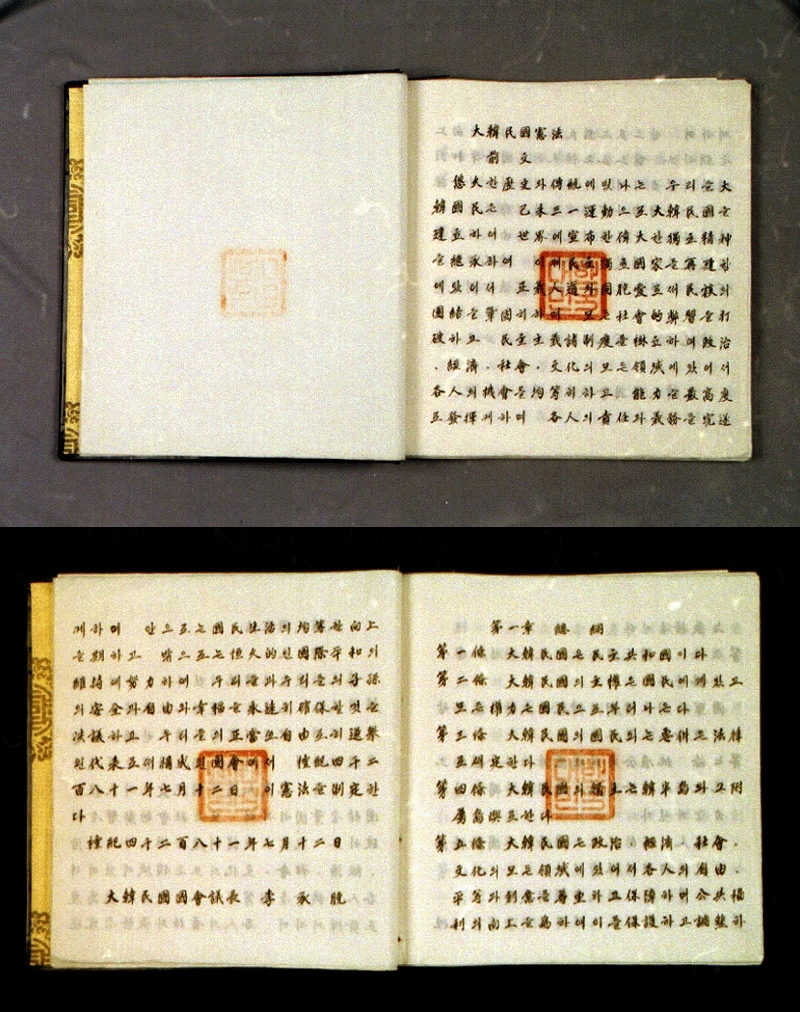 大韓民國憲法
前文
悠久한 歷史와 傳統에 빛나는 우리들 大
韓國民은 己未三一運動으로 大韓民國을
建立하여 世界에 宣布한 偉大한 獨立精神
을 繼承하여 이제 民主獨立國家를 再建함
에 있어서 正義人道와 同胞愛로써 民族의
團結을 鞏固히하며 모든 社會的 弊習을 打
破하고 民主主義諸制度를 樹立하여 政治
、經濟、社會、文化의 모든 領域에 있어서
各人의 機會를 均等히하고 能力을 最高度
로 發揮케하며 各人의 責任과 義務를 完遂
케하여 안으로는 國民生活의 均等한 向上
을 期하고 밖으로는 恒久的인 國際平和의
維持에 努力하여 우리들과 우리들의 子孫
의 安全과 自由와 幸福을 永遠히 確保할것을
決議하고 우리들의 正當또 自由로히 選擧
된 代表로써 構成된 國會에서 檀紀四千二
百八十一年七月十二日 이 憲法을 制定한
다
檀紀四千二百八十一年七月十二日
大韓民國國會議長 李承晩
第一章 總綱
第一條 大韓民國은 民主共和國이다
第二條 大韓民國의 主權은 國民에게 있고
모든 權力은 國民으로부터 나온다
第三條 大韓民國의 國民되는 要件은 法律
로써 定한다
第四條 大韓民國의 領土는 韓半島와 그 附
屬島嶼로한다
第五條 大韓民國은 政治、經濟、社會、
文化의 모든 領域에 있어서 各人의 自由、
平等과 創意를 尊重하고 保障하며 公共福
利의 向上을 爲하여 이를 保護하고 調整하